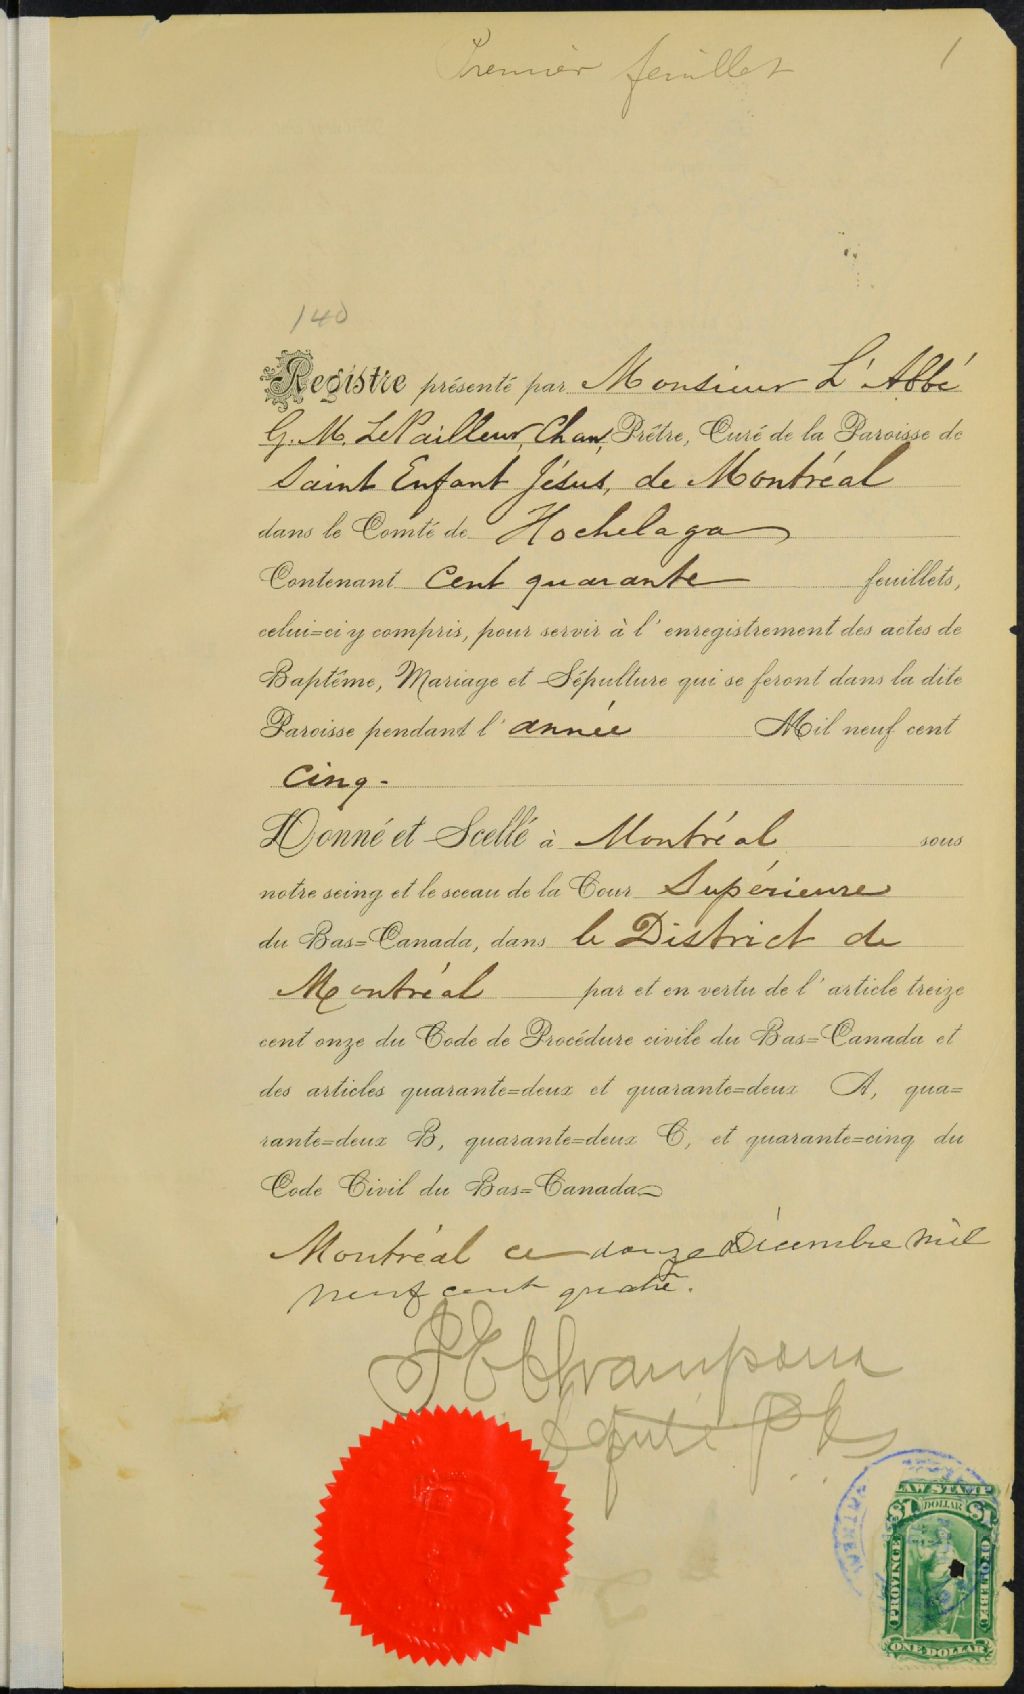 Premier feuillet
1
140
Registre présenté par Monsieur L'Abbé
G. M. LePailleur, Chan, Prêtre, Curé de la Paroisse de
Saint Enfant Jésus, de Montréal
dans le Comté de Hochelaga
Contenant cent quarante feuillets,
celui=ci y compris, pour servir à l'enregistrement des actes de
Baptême, Mariage et Sépulture qui se feront dans la dite
Paroisse pendant l'année Mil neuf cent
cinq.
Donné et Scellé à Montréal sous
notre seing et le sceau de la Cour Supérieure
du Bas=Canada, dans le District de
Montréal par et en vertu de l'article treize
cent onze du Code de Procédure civile du Bas=Canada et
des articles quarante=deux et quarante=deux A, qua=
rante=deux B, quarante=deux C, et quarante=cinq du
Code Civil du Bas=Canada
Montréal ce douze Décembre mil
neuf cent quatre.
LAW STAMP
$1 DOLLAR $1
PROVINCE OF QUEBEC
ONE DOLLAR